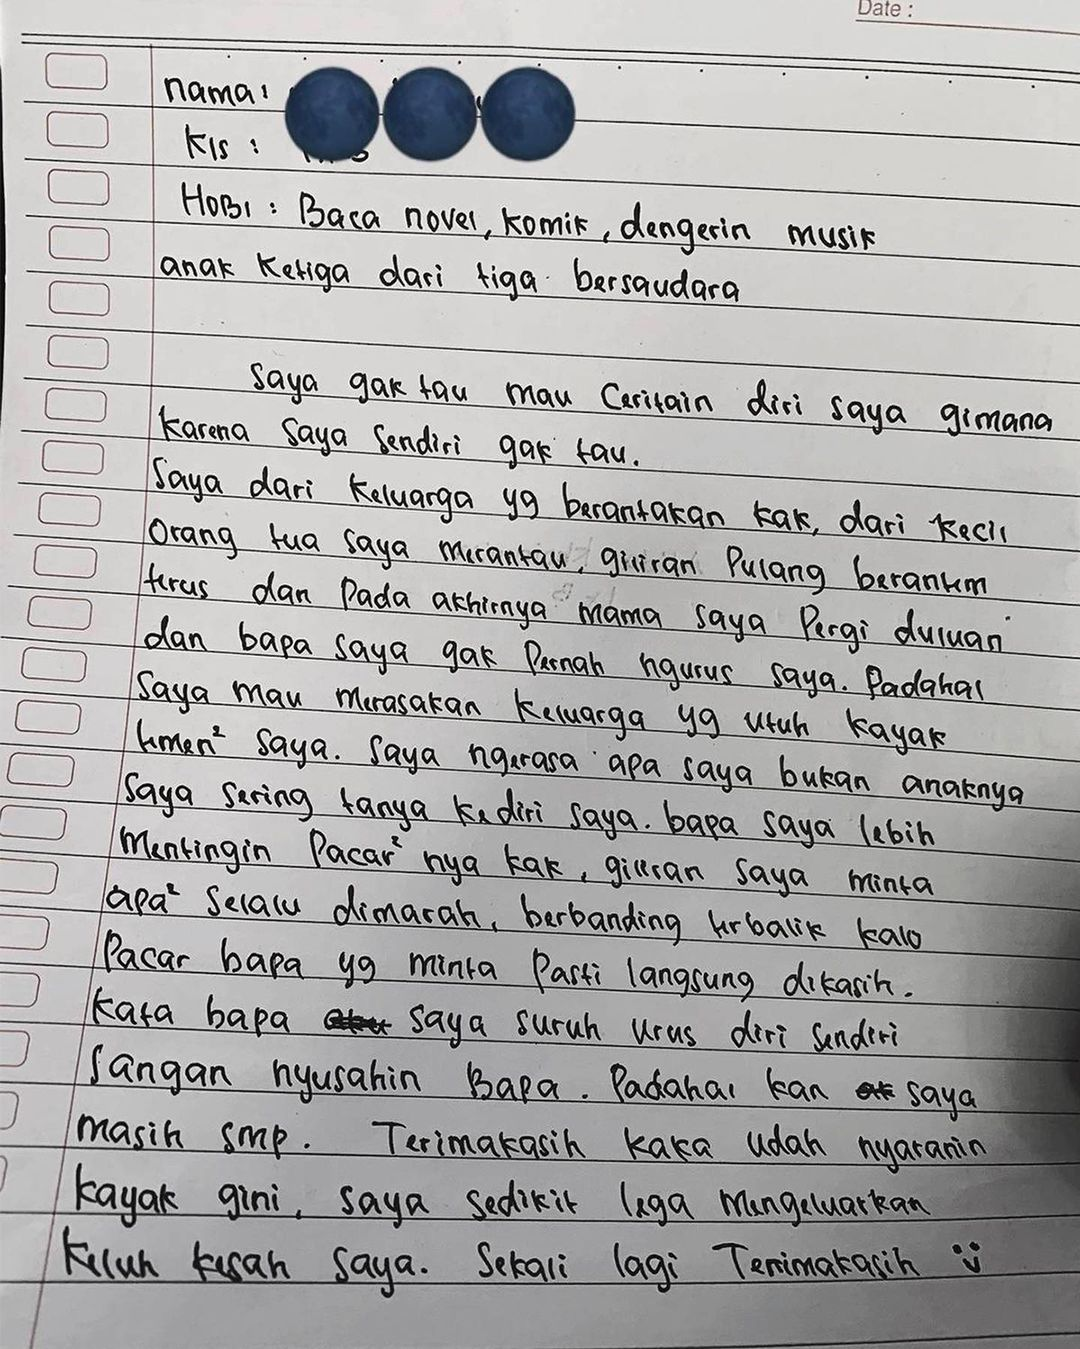 Date :
nama :
Kls :
HOBI : Baca novel, komik, dengerin musik
anak ketiga dari tiga bersaudara
Saya gak tau mau Ceritain diri saya gimana
karena Saya Sendiri gak tau.
Saya dari keluarga yg berantakan kak, dari kecil
Orang tua saya merantau, giliran Pulang berantem
terus dan Pada akhirnya mama saya Pergi duluan
dan bapa saya gak Pernah ngurus saya. Padahal
Saya mau Merasakan keluarga yg utuh kayak
temen² saya. Saya ngerasa apa saya bukan anaknya
Saya Sering tanya ke diri saya. bapa saya lebih
Mentingin Pacar² nya kak, giliran saya minta
apa² Selalu dimarah, berbanding terbalik kalo
Pacar bapa yg minta Pasti langsung dikasih.
Kata bapa saya suruh urus diri sendiri
Jangan nyusahin Bapa. Padahal kan saya
masih smp. Terimakasih kaka udah nyaranin
kayak gini, saya sedikit lega Mengeluarkan
keluh kesah saya. Sekali lagi Terimakasih